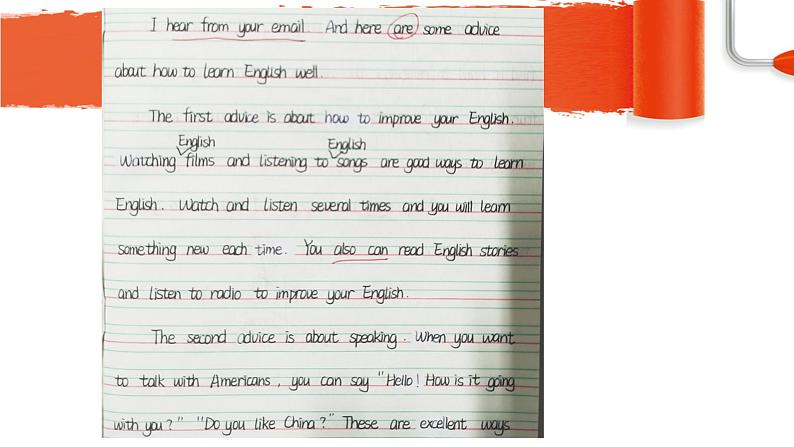 I hear from your email. And here are some advice
about how to learn English well.
The first advice is about how to improve your English.
English English
Watching films and listening to songs are good ways to learn
English. Watch and listen several times and you will learn
something new each time. You also can read English stories
and listen to radio to improve your English.
The second advice is about speaking. When you want
to talk with Americans, you can say "Hello! How is it going
with you?" "Do you like China?" These are excellent ways